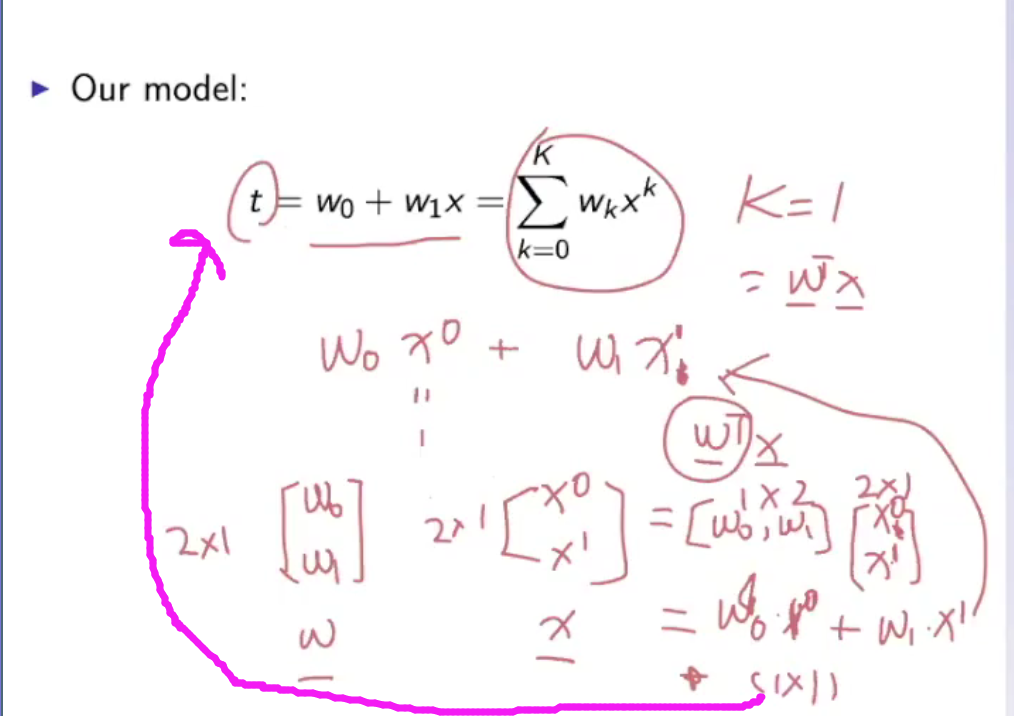 ▶ Our model:
t = w₀ + w₁x = ∑ₖ₌₀ᴷ wₖxᵏ
K=1
= w̲ᵀx̲
w₀ x⁰ + w₁ x¹
"
1
w̲ᵀx̲
2×1 [w₀ w₁] 2×1 [x⁰ x¹] = [w₀, w₁] 1×2 [x⁰ x¹] 2×1
w̲ x̲ = w₀·x⁰ + w₁·x¹
(1×1)